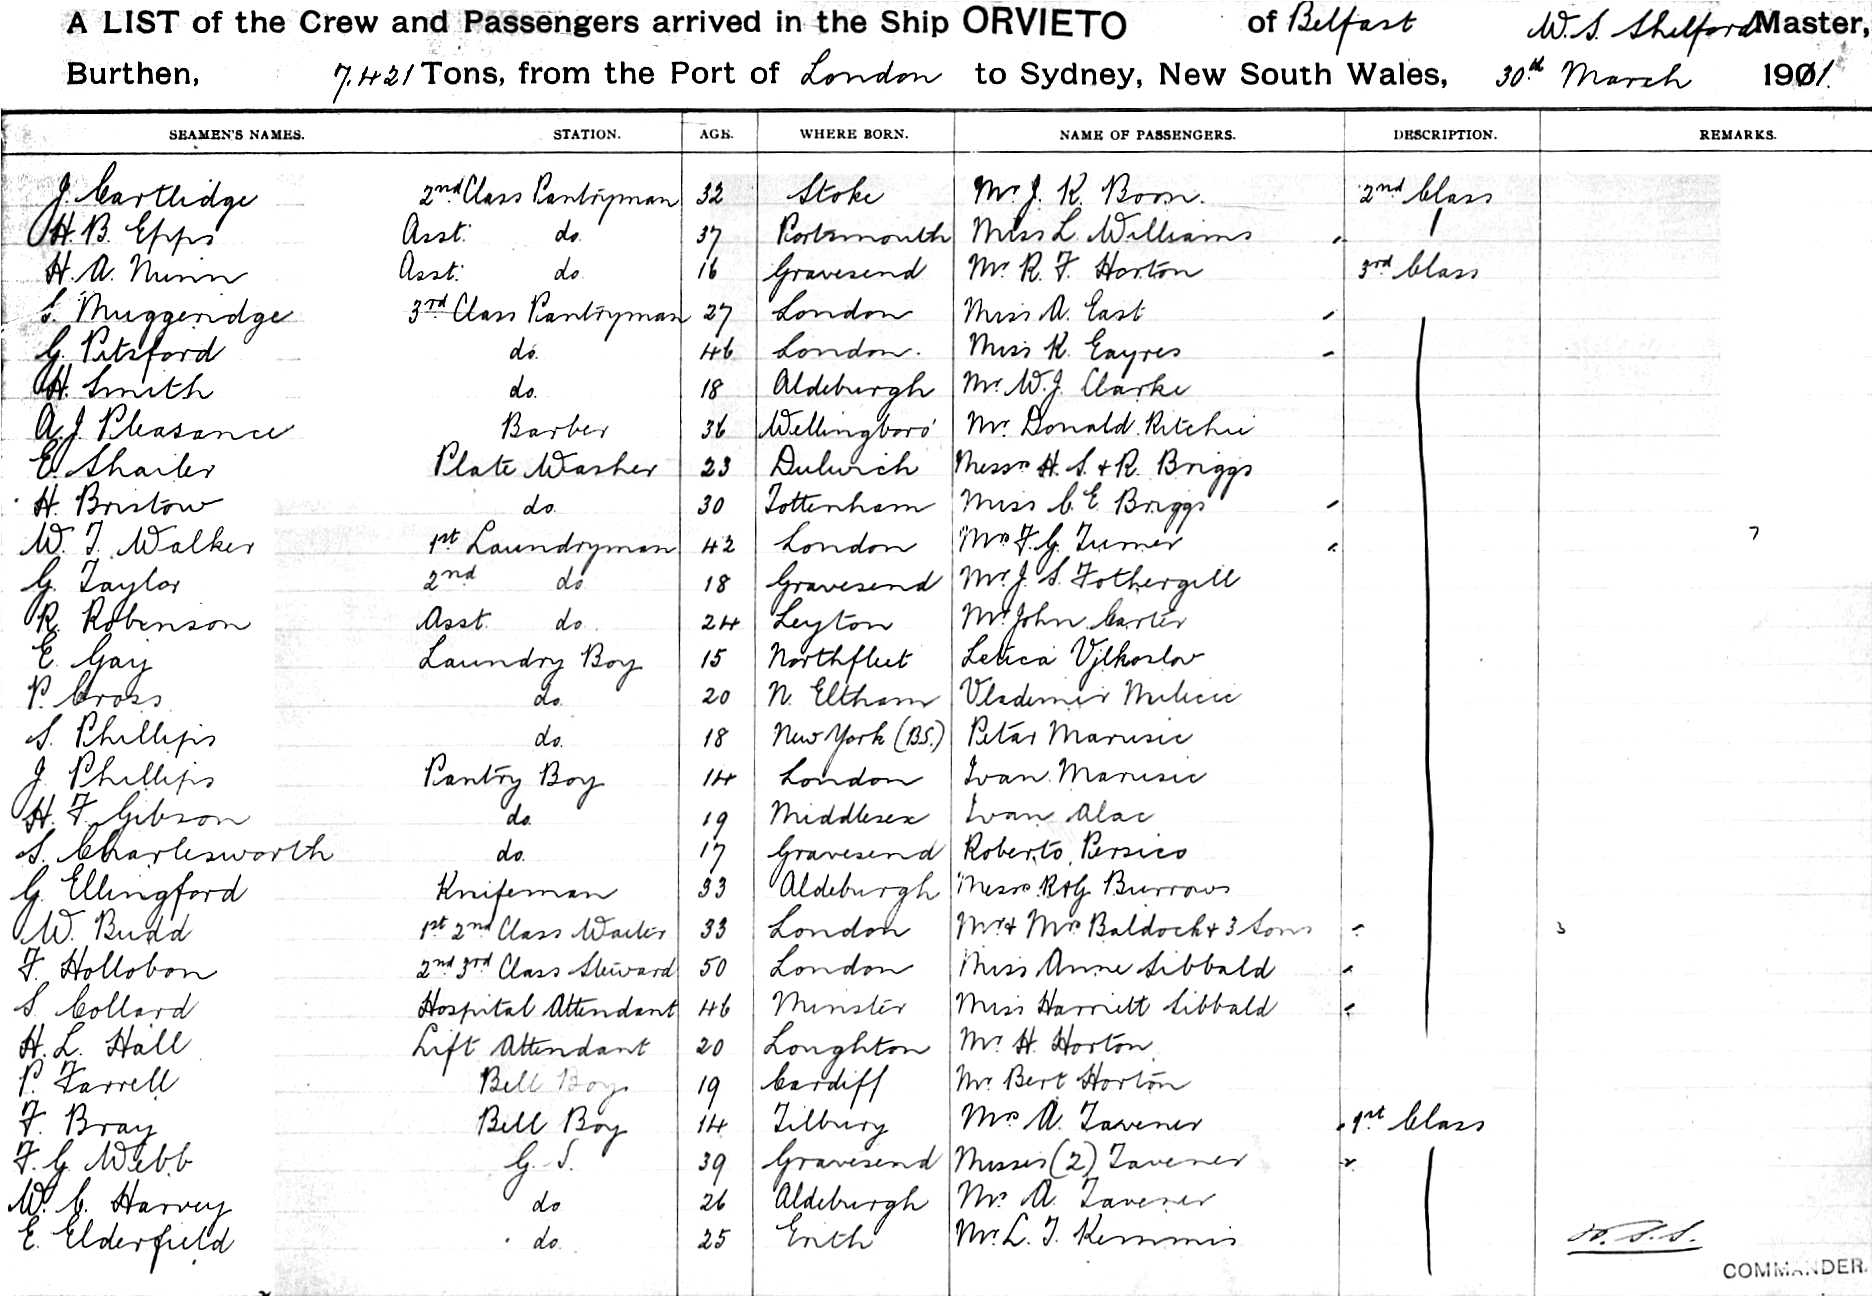 A LIST of the Crew and Passengers arrived in the Ship ORVIETO of Belfast W. S. Shelford Master,
Burthen, 7,421 Tons, from the Port of London to Sydney, New South Wales, 30th March 1901.
SEAMEN'S NAMES. STATION. AGE. WHERE BORN. NAME OF PASSENGERS. DESCRIPTION. REMARKS.
J. Cartlidge 2nd Class Pantryman 32 Stoke Mr J. K. Boon. 2nd Class
H. B. Epps Asst. do. 37 Portsmouth Miss L. Williams
H. A. Nunn Asst. do. 16 Gravesend Mr R. F. Horton 3rd Class
S. Muggeridge 3rd Class Pantryman 27 London Miss A. East
G. Pitsford do. 46 London. Miss K. Eayres
H. Smith do. 18 Aldeburgh Mr W. J. Clarke
A. J. Pleasance Barber 36 Wellingboro' Mr Donald Ritchie
E. Shailer Plate Washer 23 Dulwich Messrs H. S. & R. Briggs
H. Bristow do. 30 Tottenham Miss C. E. Briggs
W. T. Walker 1st Laundryman 42 London Mrs F. G. Turner 7
G. Taylor 2nd do 18 Gravesend Mr J. S. Fothergill
R. Robinson Asst. do. 24 Leyton Mr John Carter
E. Gay Laundry Boy 15 Northfleet Letica Vjlkoslov
P. Cross do. 20 N. Eltham Vlademir Milicic
S. Phillips do. 18 New York (BS.) Petar Marusic
J. Phillips Pantry Boy 14 London Ivan Marusic
H. F. Gibson do. 19 Middlesex Ivan Alac
S. Charlesworth do. 17 Gravesend Roberto Persico
G. Ellingford Knifeman 33 Aldeburgh Messrs R & G Burrows
W. Budd 1st 2nd Class Waiter 33 London Mr & Mrs Baldock & 3 Sons 3
F. Hollobon 2nd 3rd Class Steward 50 London Miss Anne Sibbald
S. Collard Hospital Attendant 46 Minster Miss Harriett Sibbald
H. L. Hall Lift Attendant 20 Loughton Mr H. Horton
P. Farrell Bell Boy 19 Cardiff Mr Bert Horton
F. Bray Bell Boy 14 Tilbury Mrs A. Tavener 1st Class
F. G. Webb G. S. 39 Gravesend Misses (2) Tavener
W. C. Harvey do 26 Aldeburgh Mr A. Tavener
E. Elderfield do. 25 Erith Mr L. T. Kemmis W. S. S.
COMMANDER.